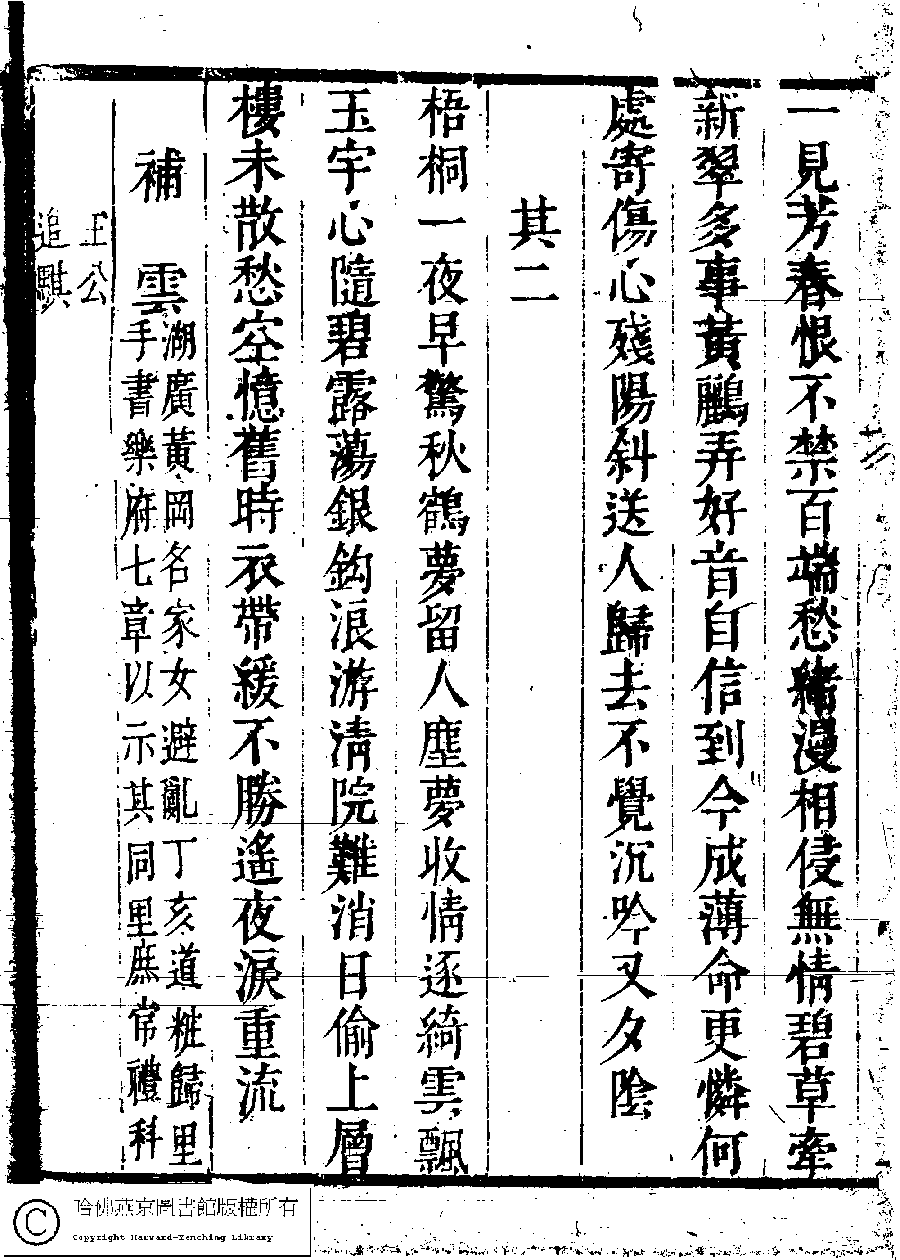 一見芳春恨不禁百端愁緒漫相侵無情碧草牽
新翠多事黃鸝弄好音自信到今成薄命更憐何
處寄傷心殘陽斜送人歸去不覺沉吟又夕陰
其二
梧桐一夜早驚秋鶴夢留人塵夢收情逐綺雲飄
玉宇心隨碧露蕩銀鈎浪游清院難消日偷上層
樓未散愁空憶舊時衣帶緩不勝遙夜淚重流
補雲
湖廣黃岡名家女避亂丁亥道粧歸里
手書樂府七章以示其同里庶常禮科
王公
追騏
哈佛燕京圖書館版權所有
Copyright Harvard-Yenching Library